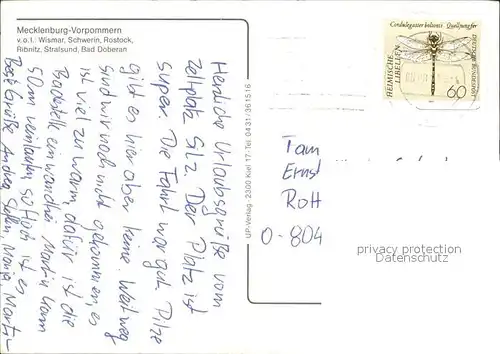 Mecklenburg-Vorpommern
v.o.l. Wismar, Schwerin, Rostock,
Ribnitz, Stralsund, Bad Doberan
Herzliche Urlaubsgrüße vom
Zeltplatz Silz. Der Platz ist
super. Die Fahrt war gut. Pilze
gibt es hier aber keine. Weit weg
sind wir noch nicht gekommen, es
ist viel zu warm, dafür ist die
Badestelle einwandfrei. Martin kann
50m reinlaufen, so flach ist es
Beste Grüße Andrea, Steffen, Monja, Martin
UP-Verlag · 2300 Kiel 17 · Tel. 0431/361516
Cordulegaster boltoni · Quelljungfer
HEIMISCHE
LIBELLEN
DEUTSCHE BUNDESPOST
60
Tam
Ernst
Rott
O-804
privacy protection
Datenschutz